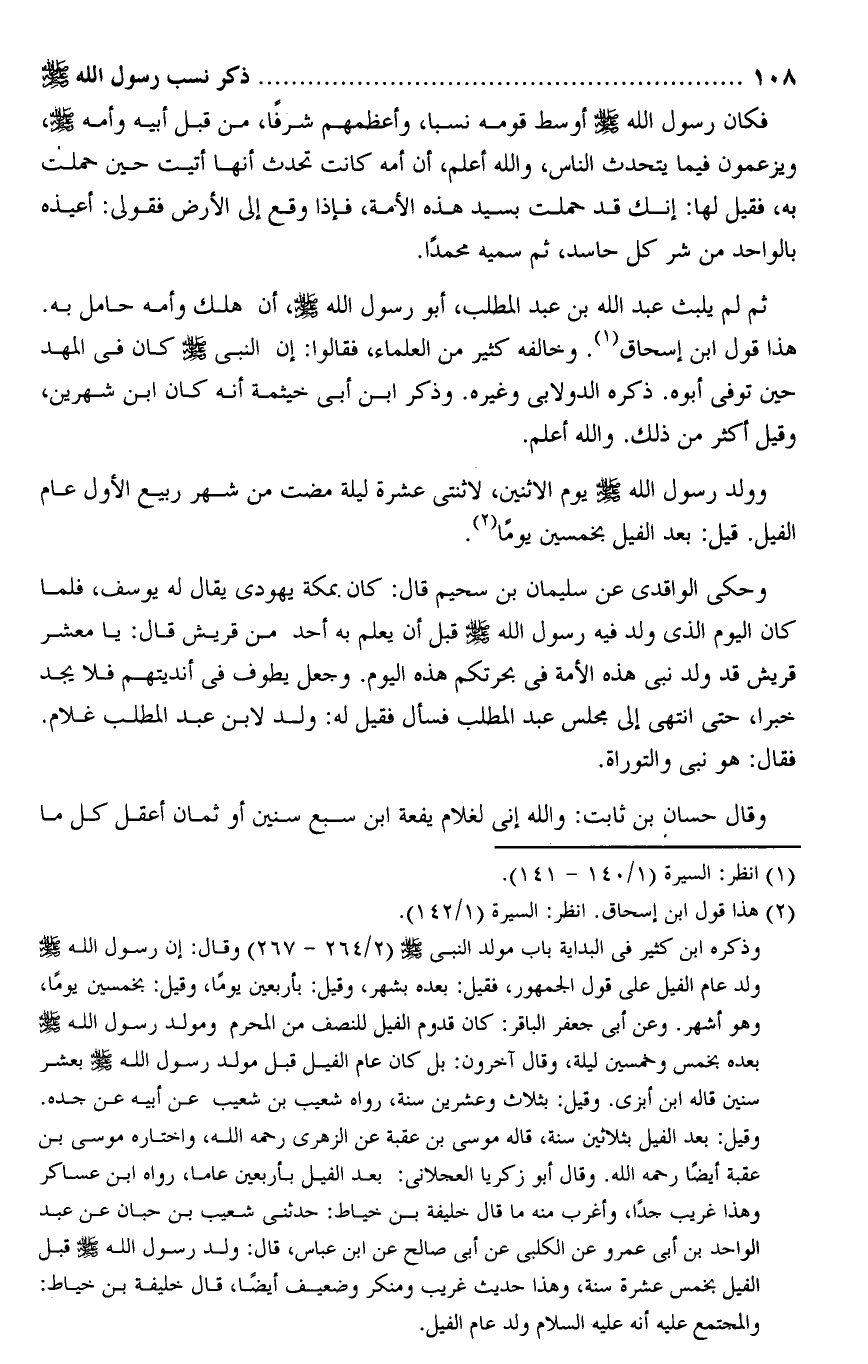 ١٠٨ ........................................................... ذكر نسب رسول الله ﷺ
فكان رسول الله ﷺ أوسط قومه نسبا، وأعظمهم شرفًا، من قبل أبيه وأمه ﷺ،
ويزعمون فيما يتحدث الناس، والله أعلم، أن أمه كانت تحدث أنها أتيت حين حملت
به، فقيل لها: إنك قد حملت بسيد هذه الأمة، فإذا وقع إلى الأرض فقولى: أعيذه
بالواحد من شر كل حاسد، ثم سميه محمدًا.
ثم لم يلبث عبد الله بن عبد المطلب، أبو رسول الله ﷺ، أن هلك وأمه حامل به.
هذا قول ابن إسحاق(١). وخالفه كثير من العلماء، فقالوا: إن النبى ﷺ كان فى المهد
حين توفى أبوه. ذكره الدولابى وغيره. وذكر ابن أبى خيثمة أنه كان ابن شهرين،
وقيل أكثر من ذلك. والله أعلم.
وولد رسول الله ﷺ يوم الاثنين، لاثنتى عشرة ليلة مضت من شهر ربيع الأول عام
الفيل. قيل: بعد الفيل بخمسين يومًا(٢).
وحكى الواقدى عن سليمان بن سحيم قال: كان بمكة يهودى يقال له يوسف، فلما
كان اليوم الذى ولد فيه رسول الله ﷺ قبل أن يعلم به أحد من قريش قال: يا معشر
قريش قد ولد نبى هذه الأمة فى بحرتكم هذه اليوم. وجعل يطوف فى أنديتهم فلا يجد
خبرا، حتى انتهى إلى مجلس عبد المطلب فسأل فقيل له: ولد لابن عبد المطلب غلام.
فقال: هو نبى والتوراة.
وقال حسان بن ثابت: والله إنى لغلام يفعة ابن سبع سنين أو ثمان أعقل كل ما
(١) انظر: السيرة (١/١٤٠ – ١٤١).
(٢) هذا قول ابن إسحاق. انظر: السيرة (١/١٤٢).
وذكره ابن كثير فى البداية باب مولد النبى ﷺ (٢/٢٦٤ – ٢٦٧) وقال: إن رسول الله ﷺ
ولد عام الفيل على قول الجمهور، فقيل: بعده بشهر، وقيل: بأربعين يومًا، وقيل: بخمسين يومًا،
وهو أشهر. وعن أبى جعفر الباقر: كان قدوم الفيل للنصف من المحرم ومولد رسول الله ﷺ
بعده بخمس وخمسين ليلة، وقال آخرون: بل كان عام الفيل قبل مولد رسول الله ﷺ بعشر
سنين قاله ابن أبزى. وقيل: بثلاث وعشرين سنة، رواه شعيب بن شعيب عن أبيه عن جده.
وقيل: بعد الفيل بثلاثين سنة، قاله موسى بن عقبة عن الزهرى رحمه الله، واختاره موسى بن
عقبة أيضًا رحمه الله. وقال أبو زكريا العجلانى: بعد الفيل بأربعين عاما، رواه ابن عساكر
وهذا غريب جدًا، وأغرب منه ما قال خليفة بن خياط: حدثنى شعيب بن حبان عن عبد
الواحد بن أبى عمرو عن الكلبى عن أبى صالح عن ابن عباس، قال: ولد رسول الله ﷺ قبل
الفيل بخمس عشرة سنة، وهذا حديث غريب ومنكر وضعيف أيضًا، قال خليفة بن خياط:
والمجتمع عليه أنه عليه السلام ولد عام الفيل.